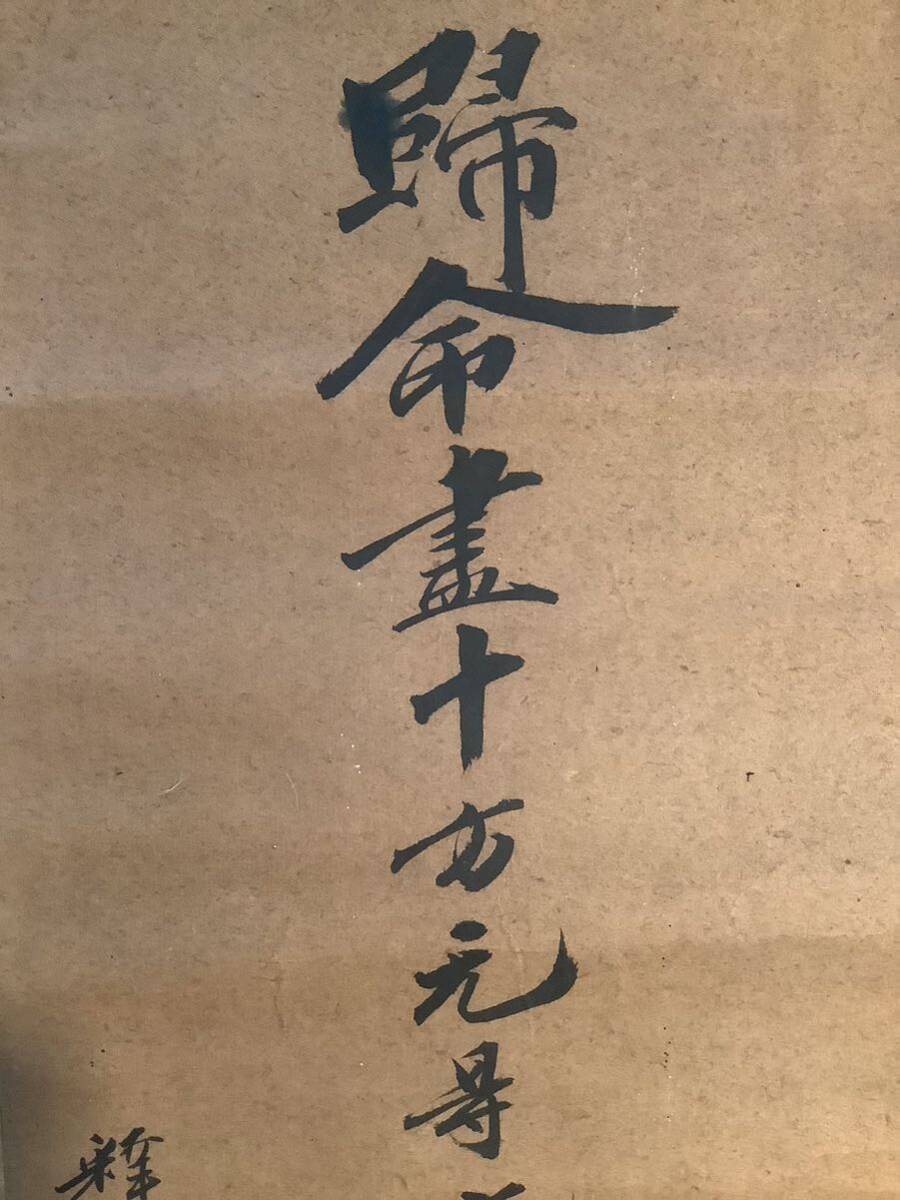 歸命盡十方无㝵
釋